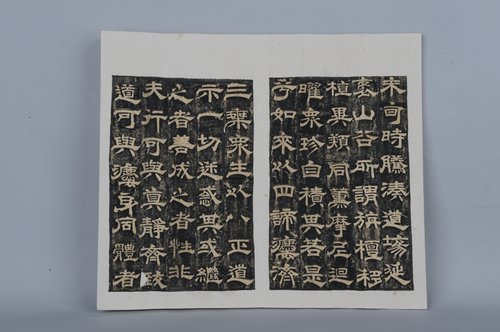 未可時騰湊道場延
袤山谷所謂旃檀移
植異類同薰摩尼迴
曜眾珍自積其若是
乎如來以四諦應濟
三乘眾生以八正道
示一切迷惑其或繼
之者善成之者性非
夫行可與真靜齊致
道可與應身同體者